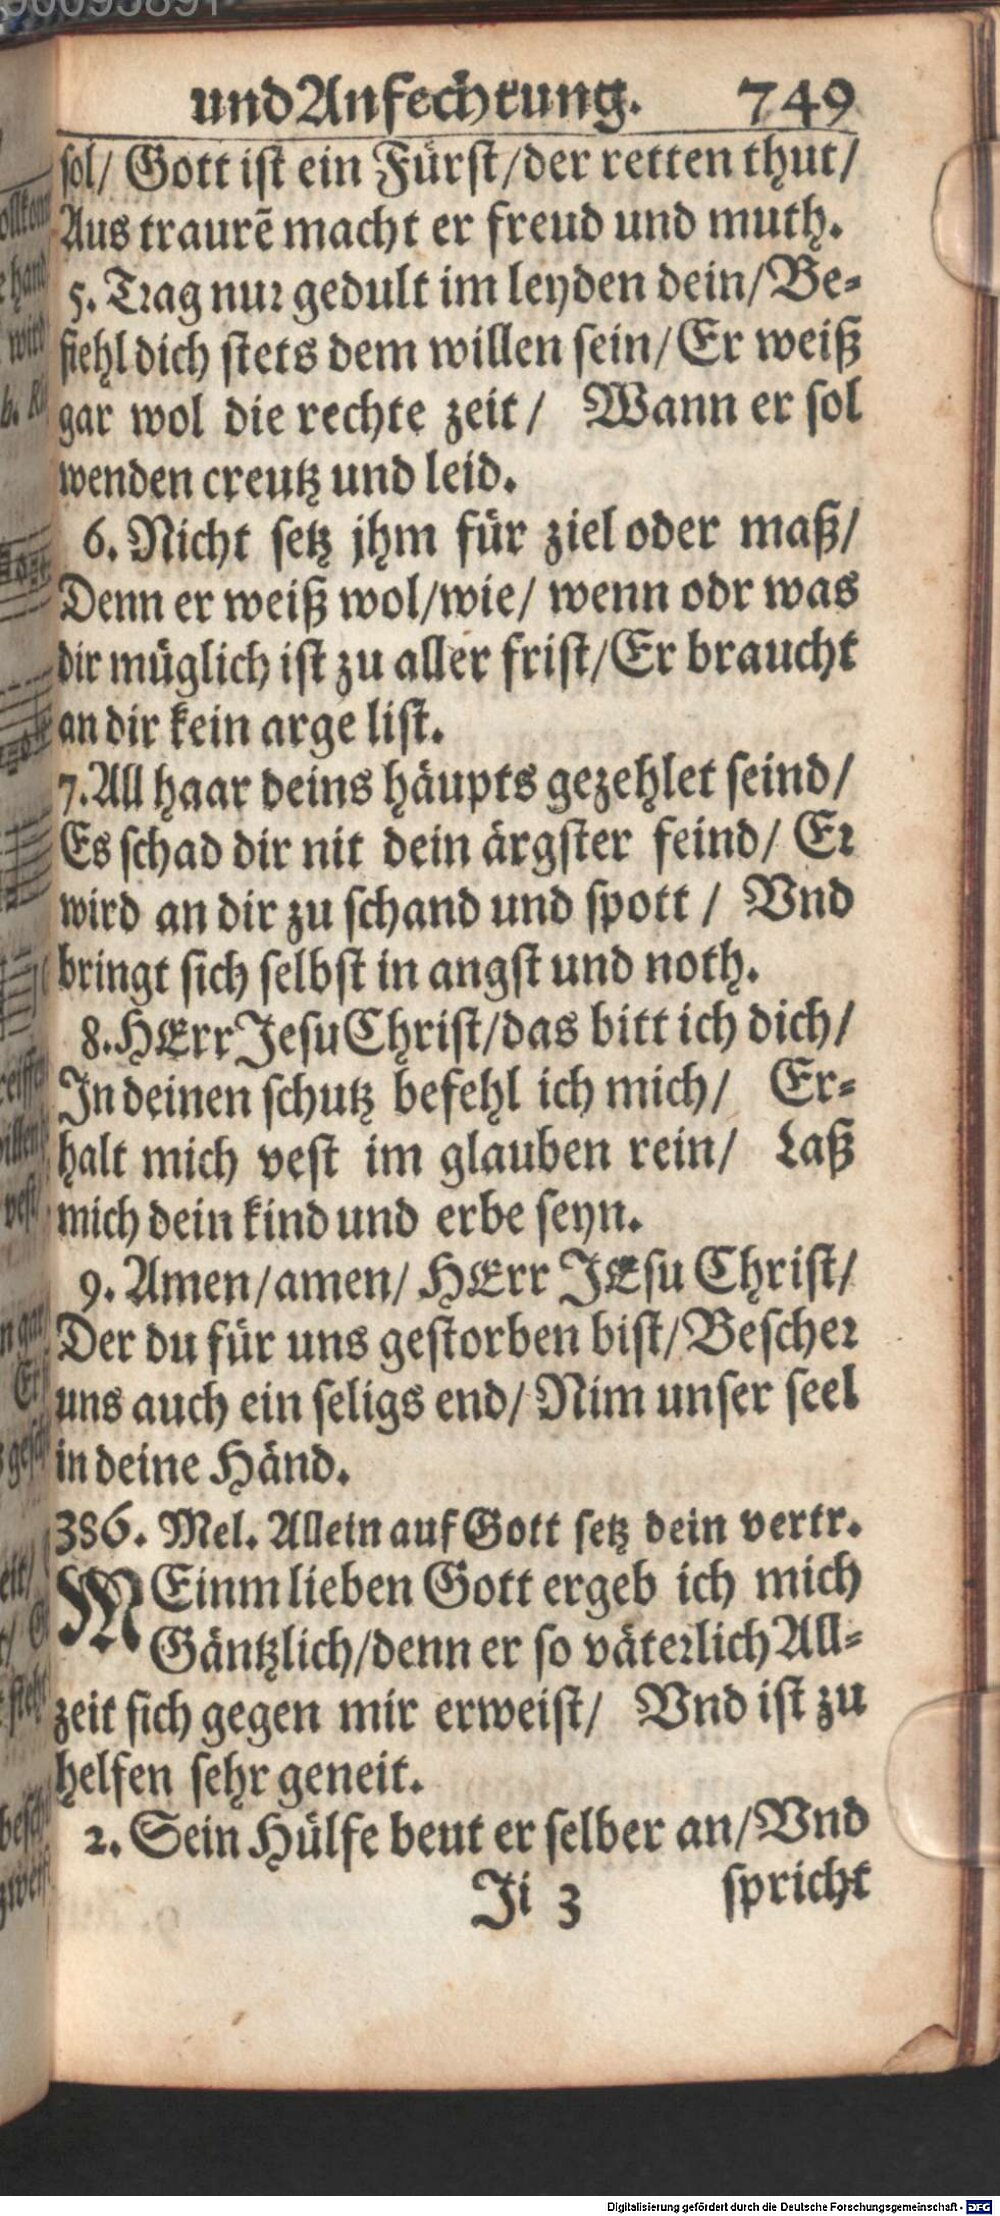 und Anfechtung. 749
sol/ Gott ist ein Fürst/der retten thut/
Aus traurẽ macht er freud und muth.
5. Trag nur gedult im leyden dein/Be-
fiehl dich stets dem willen sein/Er weiß
gar wol die rechte zeit/ Wann er sol
wenden creutz und leid.
6. Nicht setz jhm für ziel oder maß/
Denn er weiß wol/wie/ wenn odr was
dir müglich ist zu aller frist/Er braucht
an dir kein arge list.
7. All haar deins häupts gezehlet seind/
Es schad dir nit dein ärgster feind/ Er
wird an dir zu schand und spott / Vnd
bringt sich selbst in angst und noth.
8. HErr Jesu Christ/das bitt ich dich/
In deinen schutz befehl ich mich/ Er-
halt mich vest im glauben rein/ Laß
mich dein kind und erbe seyn.
9. Amen/amen/ HErr JEsu Christ/
Der du für uns gestorben bist/Bescher
uns auch ein seligs end/ Nim unser seel
in deine Händ.
386. Mel. Allein auf Gott setz dein vertr.
MEinm lieben Gott ergeb ich mich
Gäntzlich/denn er so väterlich All-
zeit sich gegen mir erweist/ Vnd ist zu
helfen sehr geneit.
2. Sein Hülfe beut er selber an/Vnd
Ji 3 spricht
Digitalisierung gefördert durch die Deutsche Forschungsgemeinschaft - DFG